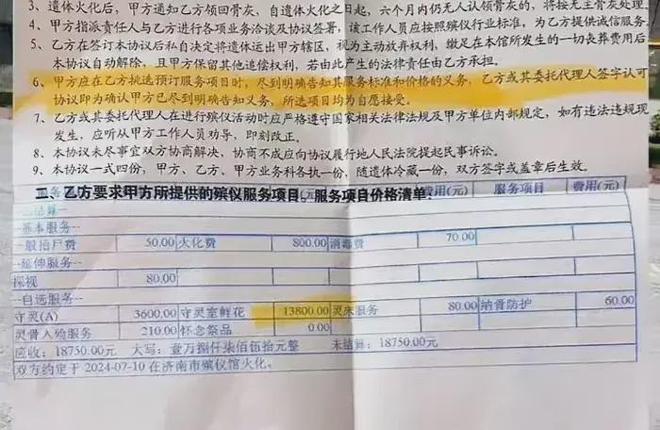 3、遗体火化后,甲方通知乙方领回骨灰,自遗体火化之日起,六个月内仍无人认领骨灰的,将按无主骨灰处理。
4、甲方指派责任人与乙方进行各项业务洽谈及协议签署,该工作人员应按照殡仪行业标准,为乙方提供诚信服务。
5、乙方在签订本协议后私自决定将遗体运出甲方辖区,视为主动放弃权利,缴足在本馆所发生的一切丧葬费用后
本协议自动解除,且甲方保留其他追偿权利,若由此产生的法律责任由乙方承担。
6、甲方应在乙方挑选预订服务项目时,尽到明确告知其服务标准和价格的义务,乙方或其委托代理人签字认可
协议即为确认甲方已尽到明确告知义务,所选项目均为自愿接受。
7、乙方或其委托代理人在进行殡仪活动时应严格遵守国家相关法律法规及甲方单位内部规定,如有违法违规现
发生,应听从甲方工作人员劝导,即刻改正。
8、本协议未尽事宜双方协商解决,协商不成应向协议履行地人民法院提起民事诉讼。
9、本协议一式四份,甲方、乙方、甲方业务科各执一份,随遗体冷藏一份,双方签字或盖章后生效。
二、乙方要求甲方所提供的殡仪服务项目、服务项目价格清单:
费用(元) 服务项目 费用(元)
--已结算--
--基本服务--
50.00 火化费 800.00 消毒费 70.00
--延伸服务--
探视 80.00
--自选服务--
守灵(A) 3600.00 守灵室鲜花 13800.00 灵床服务 80.00 纳骨防护 60.00
灵骨入殓服务 210.00 怀念祭品 0.00
应收:18750.00元 大写:壹万捌仟柒佰伍拾元整 未结算:18750.00元
双方约定于 2024-07-10 在济南市殡仪馆火化。